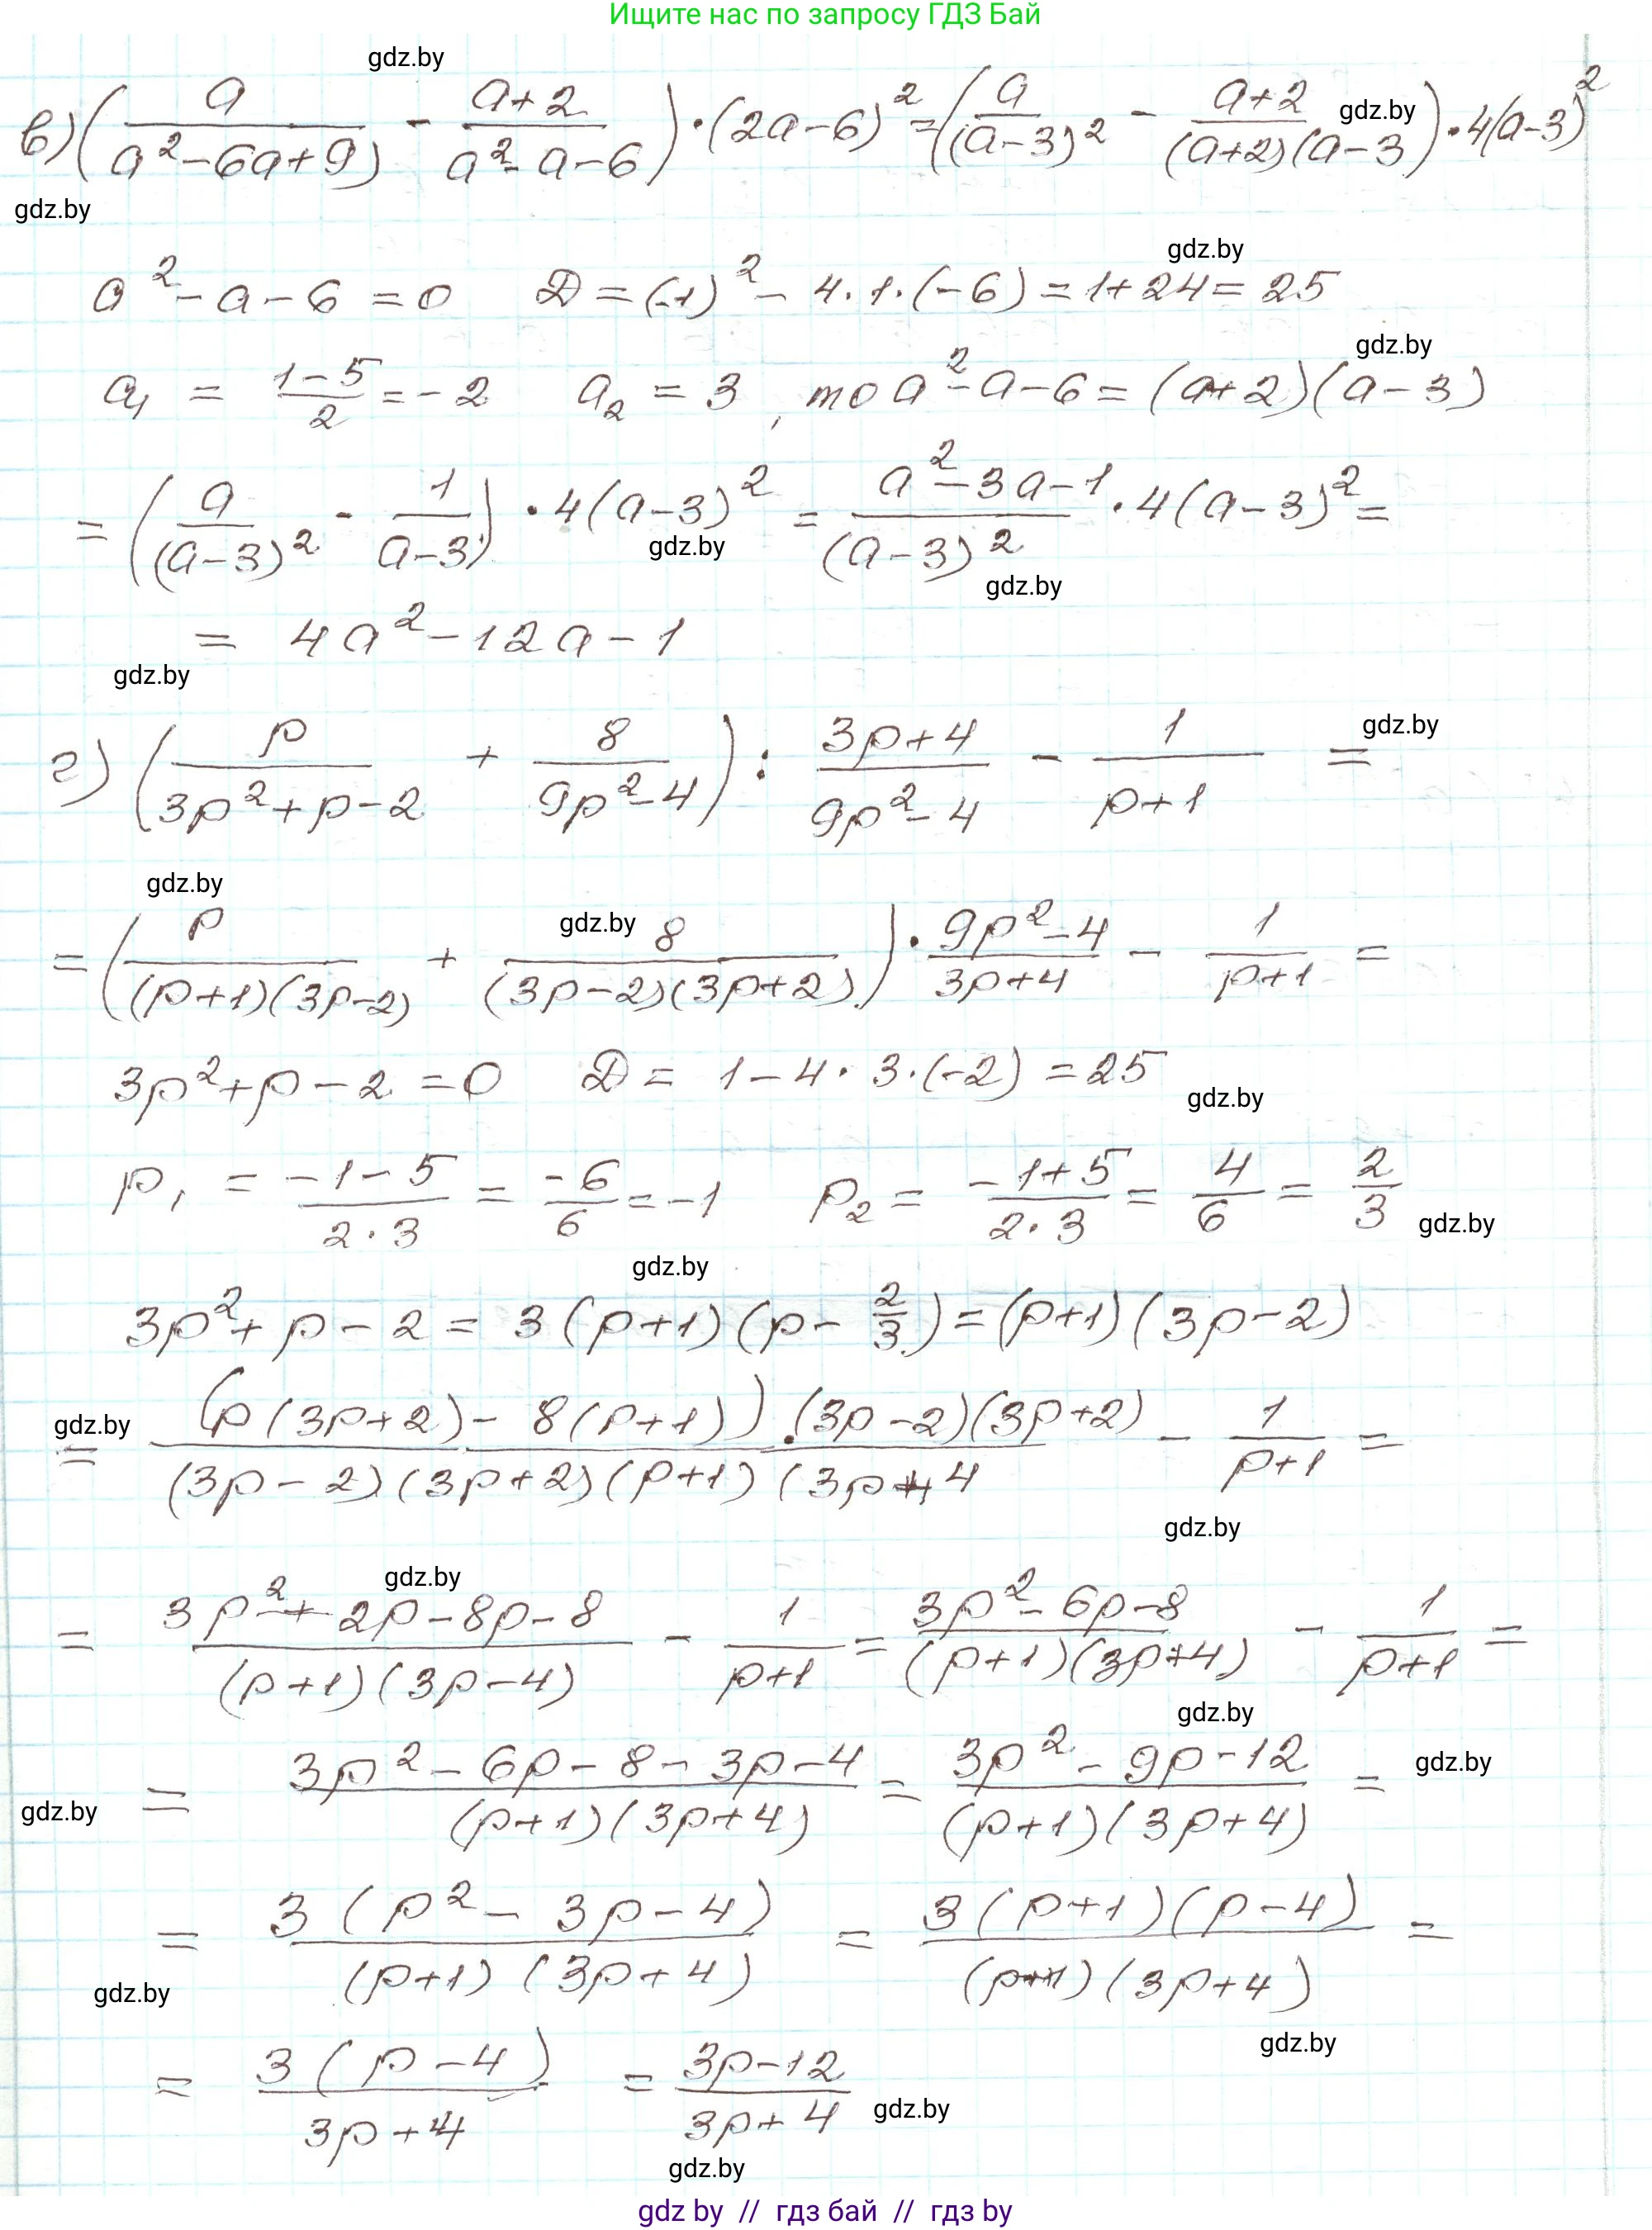 Ищите нас по запросу ГДЗ Бай
gdz.by
в) (a/(a²-6a+9) - (a+2)/(a²-a-6)) · (2a-6)² = (a/(a-3)² - (a+2)/((a+2)(a-3))) · 4(a-3)²
gdz.by
gdz.by
gdz.by
a²-a-6=0 D=(-1)²-4·1·(-6)=1+24=25
gdz.by
a₁ = (1-5)/2 = -2 a₂ = 3, то a²-a-6=(a+2)(a-3)
= (a/(a-3)² - 1/(a-3)) · 4(a-3)² = (a²-3a-1)/(a-3)² · 4(a-3)² =
gdz.by
gdz.by
= 4a²-12a-1
gdz.by
г) (p/(3p²+p-2) + 8/(9p²-4)) : (3p+4)/(9p²-4) - 1/(p+1) =
gdz.by
gdz.by
gdz.by
= (p/((p+1)(3p-2)) + 8/((3p-2)(3p+2))) · (9p²-4)/(3p+4) - 1/(p+1) =
3p²+p-2=0 D= 1-4·3·(-2)=25
gdz.by
p₁ = (-1-5)/(2·3) = -6/6 = -1 p₂ = (-1+5)/(2·3) = 4/6 = 2/3
gdz.by
gdz.by
3p²+p-2 = 3(p+1)(p-2/3) = (p+1)(3p-2)
gdz.by
= ((p(3p+2)-8(p+1))·(3p-2)(3p+2))/((3p-2)(3p+2)(p+1)(3p+4) - 1/(p+1) =
gdz.by
gdz.by
= (3p²+2p-8p-8)/((p+1)(3p-4)) - 1/(p+1) = (3p²-6p-8)/((p+1)(3p+4)) - 1/(p+1) =
gdz.by
gdz.by
gdz.by
= (3p²-6p-8-3p-4)/((p+1)(3p+4)) = (3p²-9p-12)/((p+1)(3p+4)) =
= 3(p²-3p-4)/((p+1)(3p+4)) = 3(p+1)(p-4)/((p+1)(3p+4)) =
gdz.by
gdz.by
= 3(p-4)/(3p+4) = (3p-12)/(3p+4)
gdz.by
gdz.by
gdz by // гдз бай // гдз by